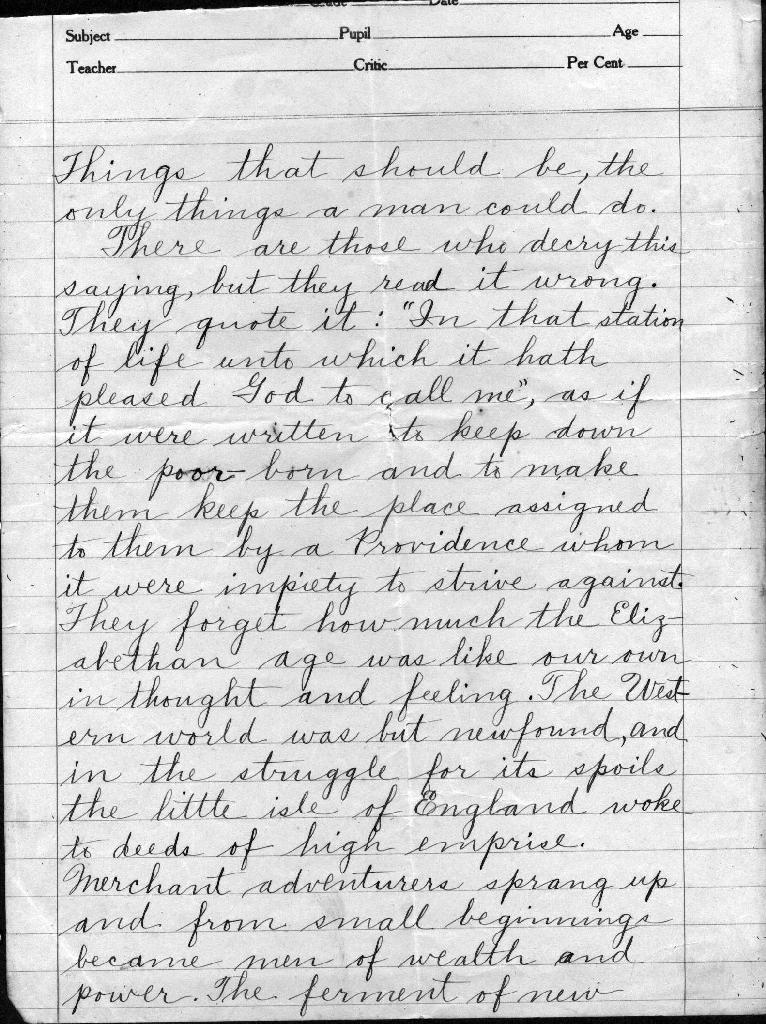 Grade Date
Subject Pupil Age
Teacher Critic Per Cent
Things that should be, the
only things a man could do.
There are those who decry this
saying, but they read it wrong.
They quote it: "In that station
of life unto which it hath
pleased God to call me", as if
it were written to keep down
the poor born and to make
them keep the place assigned
to them by a Providence whom
it were impiety to strive against.
They forget how much the Eliz-
abethan age was like our own
in thought and feeling. The West-
ern world was but newfound, and
in the struggle for its spoils
the little isle of England woke
to deeds of high emprise.
Merchant adventurers sprang up
and from small beginnings
became men of wealth and
power. The ferment of new